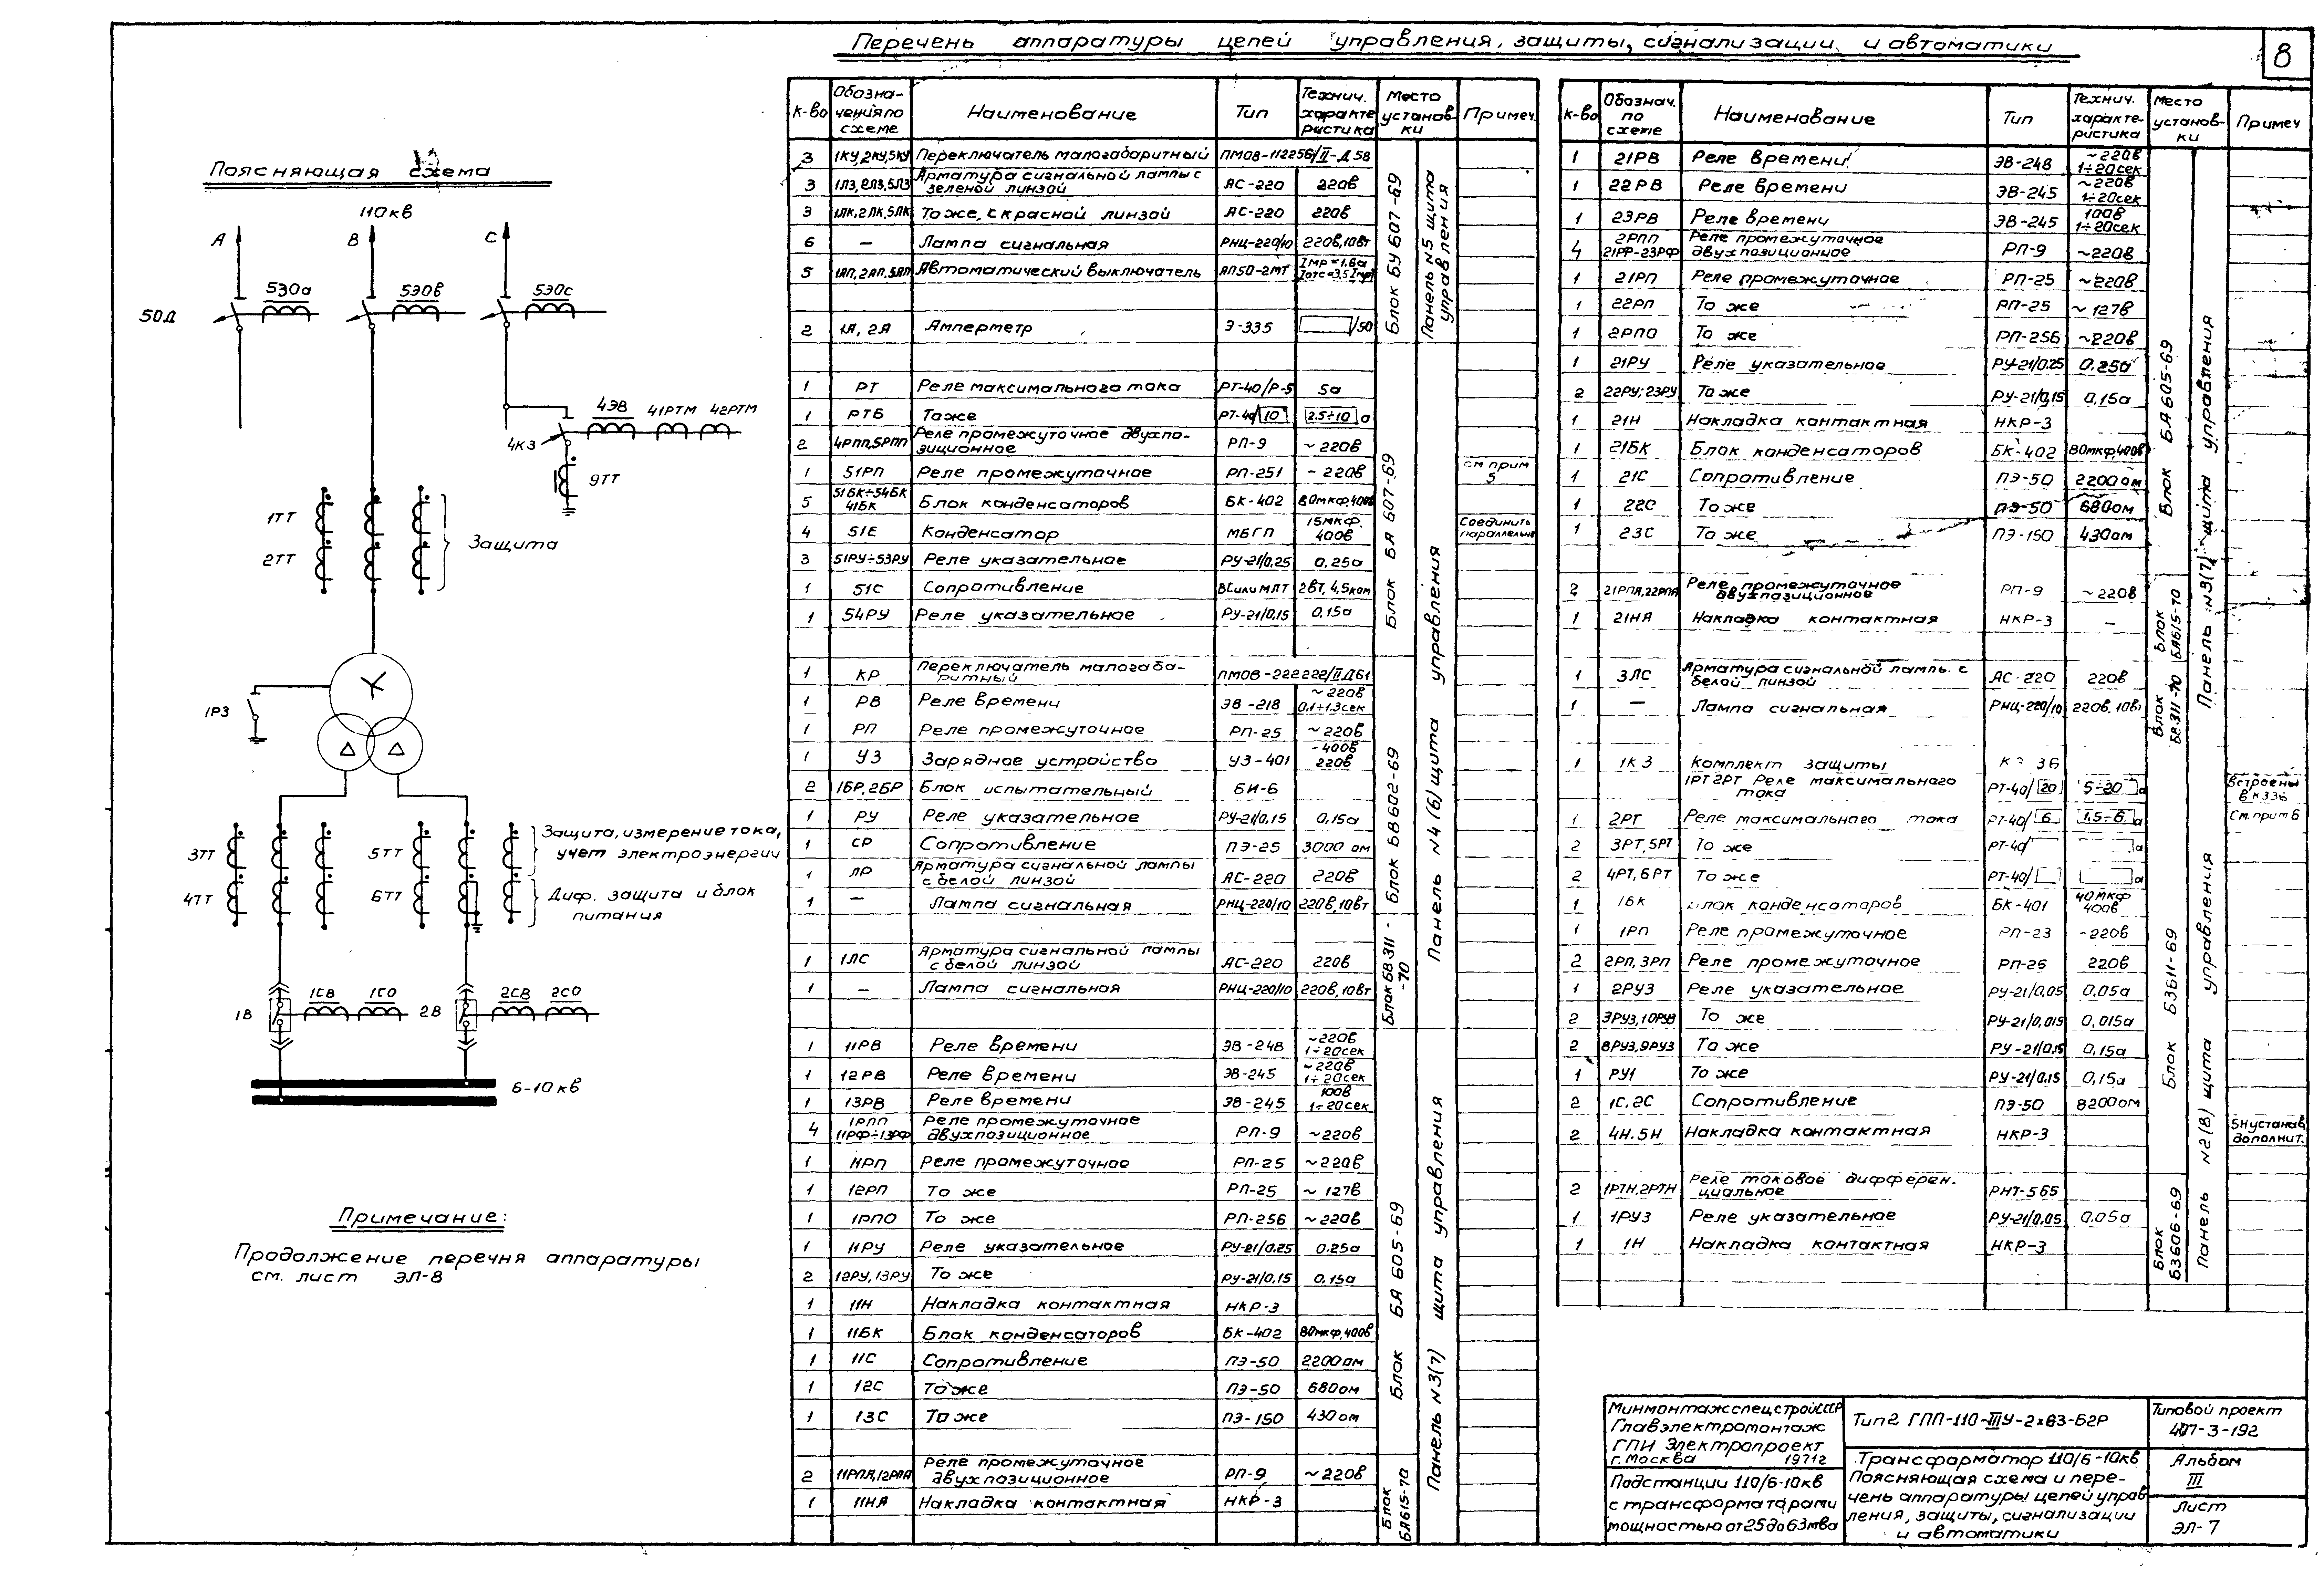 Перечень аппаратуры цепей управления, защиты, сигнализации и автоматики
8
Поясняющая схема
110кв
А В С
50Д
5Э0а
5Э0в
5Э0с
4ЭВ 41РТМ 42РТМ
4КЗ
9ТТ
1ТТ
2ТТ
Защита
1РЗ
3ТТ
4ТТ
5ТТ
6ТТ
Защита, измерение тока,
учет электроэнергии
Диф. защита и блок
питания
1В
1СВ 1СО
2В
2СВ 2СО
6-10кв
Примечание:
Продолжение перечня аппаратуры
см. лист ЭЛ-8
к-во Обозна-чения по схеме Наименование Тип Технич. характеристика Место установ-ки Примеч.
3 1КУ,2КУ,5КУ Переключатель малогабаритный ПМОВ-112256/II-Д58
3 1ЛЗ,2ЛЗ,5ЛЗ Арматура сигнальной лампы с зеленой линзой АС-220 220в
3 1ЛК,2ЛК,5ЛК То же, с красной линзой АС-220 220в
6 — Лампа сигнальная РНЦ-220/10 220в,10вт
5 1АП,2АП,5АП Автоматический выключатель АП50-2МТ Iмр=1,6а Iотс=3,5Iмр
2 1А, 2А Амперметр Э-335 /50
Блок БУ 607-69
Панель N5 щита управления
1 РТ Реле максимального тока РТ-40/Р-5 5а
1 РТБ То же РТ-40/10 2.5÷10 а
2 4РПП,5РПП Реле промежуточное двухпо-зиционное РП-9 ~220в
1 51РП Реле промежуточное РП-251 -220в см прим 5
5 51БК÷54БК 41БК Блок конденсаторов БК-402 80мкф,400в
4 51Е Конденсатор МБГП 15мкф. 400в Соединить параллельно
3 51РУ÷53РУ Реле указательное РУ-21/0,25 0,25а
1 51С Сопротивление ВС или МЛТ 2вт, 4,5ком
1 54РУ Реле указательное РУ-21/0,15 0,15а
Блок БА 607-69
1 КР Переключатель малогаба-ритный ПМОВ-222222/IIД61
1 РВ Реле времени ЭВ-218 ~220в 0,1÷1.3сек
1 РП Реле промежуточное РП-25 ~220в
1 УЗ Зарядное устройство УЗ-401 -400в 220в
2 1БР,2БР Блок испытательный БИ-6
1 РУ Реле указательное РУ-21/0,15 0,15а
1 СР Сопротивление ПЭ-25 3000 ом
1 ЛР Арматура сигнальной лампы с белой линзой АС-220 220в
1 — Лампа сигнальная РНЦ-220/10 220в,10вт
Блок БВ602-69
1 1ЛС Арматура сигнальной лампы с белой линзой АС-220 220в
1 — Лампа сигнальная РНЦ-220/10 220в,10вт
Блок БВ 311-70
Панель N4(6) щита управления
1 11РВ Реле времени ЭВ-248 ~220в 1÷20сек
1 12РВ Реле времени ЭВ-245 ~220в 1÷20сек
1 13РВ Реле времени ЭВ-245 100в 1÷20сек
4 1РПП 11РФ÷13РФ Реле промежуточное двухпозиционное РП-9 ~220в
1 11РП Реле промежуточное РП-25 ~220в
1 12РП То же РП-25 ~127в
1 1РПО То же РП-256 ~220в
1 11РУ Реле указательное РУ-21/0.25 0.25а
2 12РУ,13РУ То же РУ-21/0,15 0,15а
1 11Н Накладка контактная НКР-3
1 11БК Блок конденсаторов БК-402 80мкф,400в
1 11С Сопротивление ПЭ-50 2200ом
1 12С То же ПЭ-50 680ом
1 13С То же ПЭ-150 430ом
Блок БА 605-69
2 11РПА,12РПА Реле промежуточное двухпозиционное РП-9 ~220в
1 11НА Накладка контактная НКР-3
Блок БА615-70
Панель N3(7) щита управления
к-во Обознач. по схеме Наименование Тип Технич. характе-ристика Место установ-ки Примеч
1 21РВ Реле времени ЭВ-248 ~220в 1÷20сек
1 22РВ Реле времени ЭВ-245 ~220в 1÷20сек
1 23РВ Реле времени ЭВ-245 100в 1÷20сек
4 2РПП 21РФ-23РФ Реле промежуточное двухпозиционное РП-9 ~220в
1 21РП Реле промежуточное РП-25 ~220в
1 22РП То же РП-25 ~127в
1 2РПО То же РП-256 ~220в
1 21РУ Реле указательное РУ-21/0.25 0.25а
2 22РУ;23РУ То же РУ-21/0,15 0,15а
1 21Н Накладка контактная НКР-3
1 21БК Блок конденсаторов БК-402 80мкф,400в
1 21С Сопротивление ПЭ-50 2200ом
1 22С То же ПЭ-50 680ом
1 23С То же ПЭ-150 430ом
Блок БА605-69
2 21РПА,22РПА Реле промежуточное двухпозиционное РП-9 ~220в
1 21НА Накладка контактная НКР-3 —
Блок БА615-70
1 3ЛС Арматура сигнальной лампы с белой линзой АС-220 220в
1 — Лампа сигнальная РНЦ-220/10 220в,10вт
Блок БВ311-70
Панель N3(7) щита управления
1 1КЗ Комплект защиты 36
1РТ 2РТ Реле максимального тока РТ-40/20 5÷20 а Встроены в кз36
1 2РТ Реле максимального тока РТ-40/6 1.5÷6 а См.прим 6
2 3РТ,5РТ То же РТ-40/ а
2 4РТ,6РТ То же РТ-40/ а
1 1БК Блок конденсаторов БК-401 40мкф 400в
1 1РП Реле промежуточное РП-23 -220в
2 2РП,3РП Реле промежуточное РП-25 220в
1 2РУЗ Реле указательное РУ-21/0,05 0,05а
2 3РУЗ,10РУЗ То же РУ-21/0,015 0,015а
2 8РУЗ,9РУЗ То же РУ-21/0,15 0,15а
1 РУ1 То же РУ-21/0,15 0,15а
2 1С,2С Сопротивление ПЭ-50 8200ом
2 4Н.5Н Накладка контактная НКР-3 5Н устанав дополнит.
Блок БЗ611-69
2 1РТН,2РТН Реле токовое дифферен.циальное РНТ-565
1 1РУЗ Реле указательное РУ-21/0.05 0,05а
1 1Н Накладка контактная НКР-3
Блок БЗ606-69
Панель N2(8) щита управления
Минмонтажспецстрой СССР
Главэлектромонтаж
ГПИ Электропроект
г. Москва 1971г
Подстанции 110/6-10кв
с трансформаторами
мощностью от 25 до 63мва
Тип2 ГПП-110-IIIУ-2х63-Б2Р
Трансформатор 110/6-10кв
Поясняющая схема и пере-
чень аппаратуры цепей управ
ления, защиты, сигнализации
и автоматики
Типовой проект
407-3-192
Альбом
III
Лист
ЭЛ-7